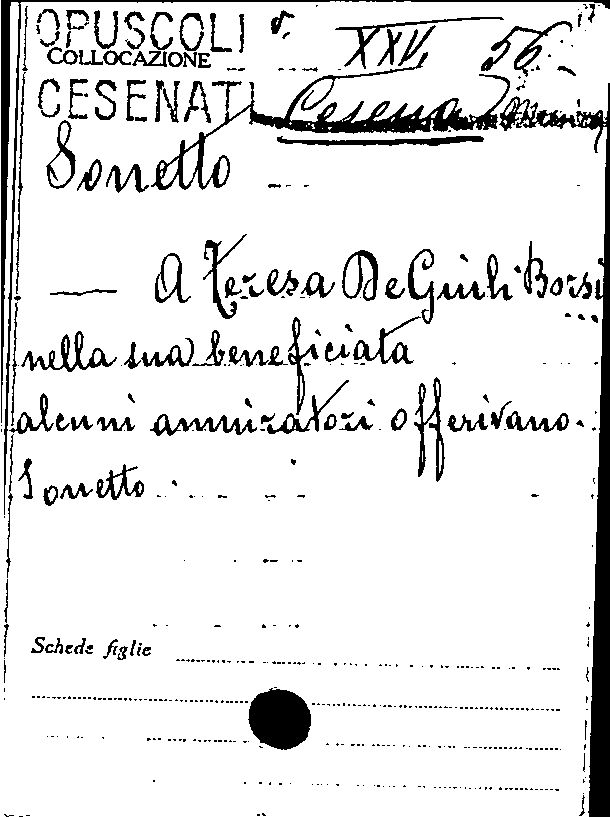 OPUSCOLI v. XXV. 56
COLLOCAZIONE
CESENATI Cesena
Sonetto
— A Teresa De Giuli Borsi
nella sua beneficiata
alcuni ammiratori offerivano.
Sonetto.
Schede figlie